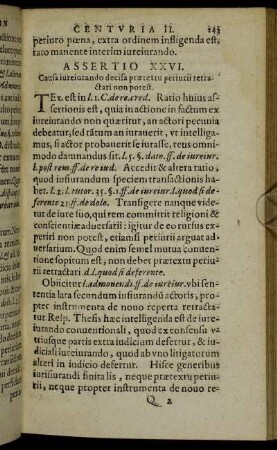 CENTVRIA II. 243
periuro pœna, extra ordinem infligenda est,
rato manente interim iureiurando.
ASSERTIO XXVI.
Causa iureiurando decisa prætextu periurii retra-
ctari non potest.
TEx. est in l. 1. C. de re. cred. Ratio huius as-
sertionis est, quia in actione in factum ex
iureiurando non quæritur, an actori pecunia
debeatur, sed tātum an iurauerit, vt intelliga-
mus, si actor probauerit se iurasse, reus omni-
modo damnandus sit. l. 5. §. dato. ff. de iureiur.
l. post rem. ff. de re iud. Accedit & altera ratio,
quod iusiurandum speciem transactionis ha-
bet. l. 2. l. tutor. 35. §. 1. ff. de iureiur. l. quod si de-
ferente 21. ff. de dolo. Transigere nanque vide-
tur de iure suo, qui rem committit religioni &
conscientiæ aduersarii: igitur de eo rursus ex-
periri non potest, etiamsi periurii arguat ad-
uersarium. Quod enim semel mutua conuen-
tione sopitum est, non debet prætextu periu-
rii retractari d. l. quod si deferente.
Obiicitur l. admonendi. ff. de iureiur. vbi sen-
tentia lata secundum iusiurandū actoris, pro-
pter instrumenta de nouo reperta retracta-
tur Resp. Thesis hæc intelligenda est de iure-
iurando conuentionali, quod ex consensu v-
triusque partis extra iudicium defertur, & iu-
diciali iureiurando, quod ab vno litigatorum
alteri in indicio defertur. Hisce generibus
iurisiurandi finita lis, neque prætextu periu-
rii, neque propter instrumenta de nouo re-
Q 2